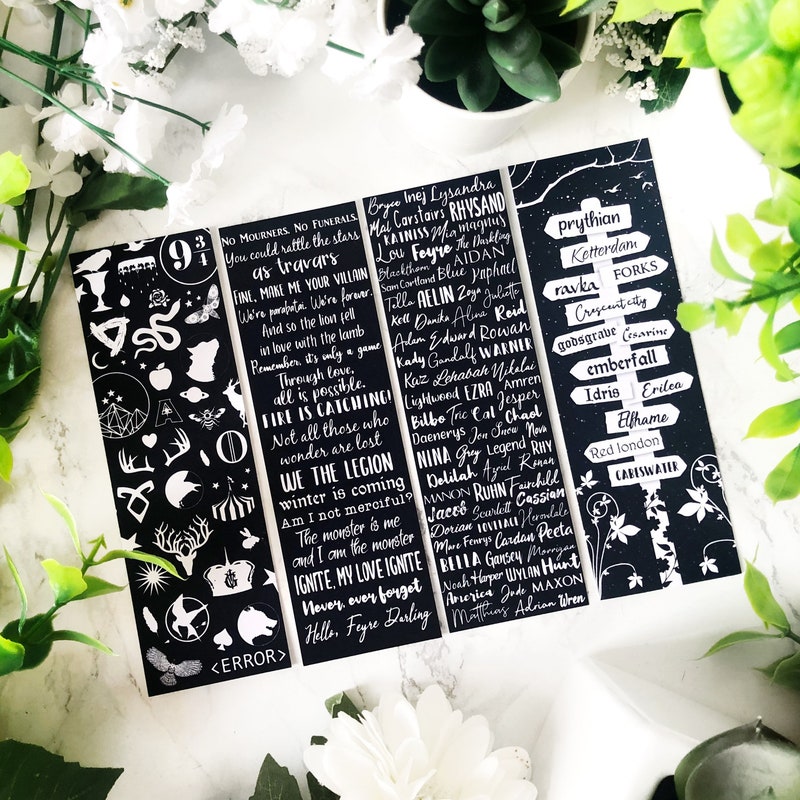 9 3/4
<ERROR>
No Mourners. No Funerals.
You could rattle the stars
as travars
FINE, MAKE ME YOUR VILLAIN
We're parabatai. We're forever.
And so the lion fell
in love with the lamb
Remember, it's only a game
Through love,
all is possible.
FIRE IS CATCHING!
Not all those who
wonder are lost
WE THE LEGION
winter is coming
Am I not merciful?
The monster is me
and I am the monster
IGNITE, MY LOVE IGNITE
Never, ever forget
Hello, Feyre Darling
Bryce Inej Lysandra
Mal Carstairs RHYSAND
KATNISS Mia magnus
Lou Feyre The Darkling
Blackthorn AIDAN
Sam Cortland Blue Raphael
Tella AELIN Zoya Juliette
Kell Danika Alina Reid
Adam Edward Rowan
Kady Gandalf WARNER
Kaz Lehabah Nikolai
Lightwood EZRA Amren
Bilbo Tric Cal Jesper
Chaol
Daenerys Jon Snow Nova
NINA Grey Legend RHY
Delilah Azriel Ronan
MANON RUHN Fairchild
Jacob Scarlett Cassian
Dorian LOVELACE Herondale
Marc Fenrys Cardan Peeta
BELLA Gansey Morrigan
Noah Harper WYLAN Hunt
America Jude MAXON
Matthias Adrian Wren
prythian
Ketterdam
ravka FORKS
Crescent city
godsgrave Cesarine
emberfall
Idris Erilea
Elfhame
Red london
CABESWATER